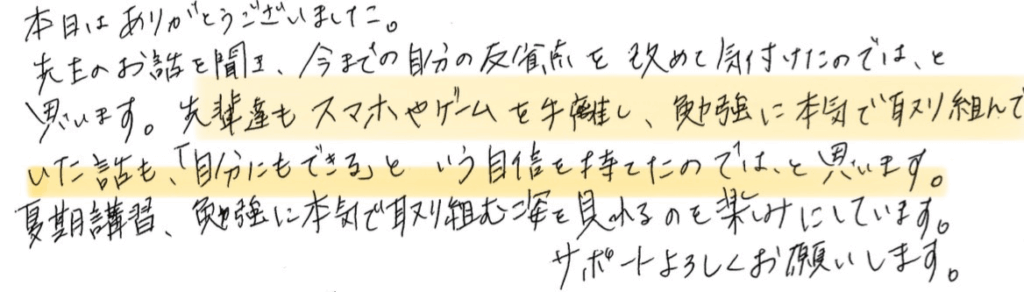 本日はありがとうございました。
先生のお話を聞き、今までの自分の反省点を改めて気付けたのでは、と
思います。先輩達もスマホやゲームを手離し、勉強に本気で取り組んで
いた話も、「自分にもできる」という自信を持てたのでは、と思います。
夏期講習、勉強に本気で取り組む姿を見れるのを楽しみにしています。
サポートよろしくお願いします。